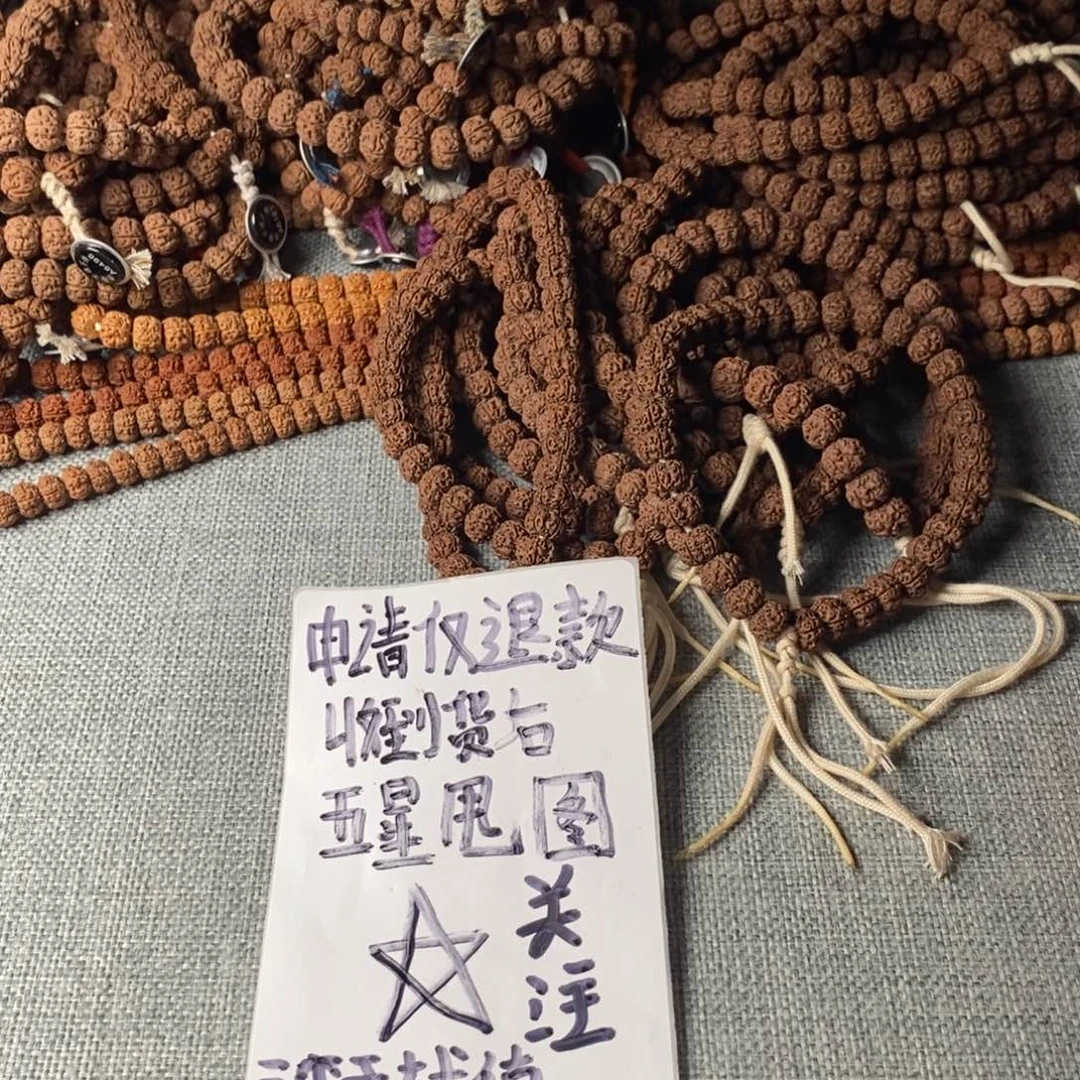 申请仅退款
收到货右
五星甩图
关
注